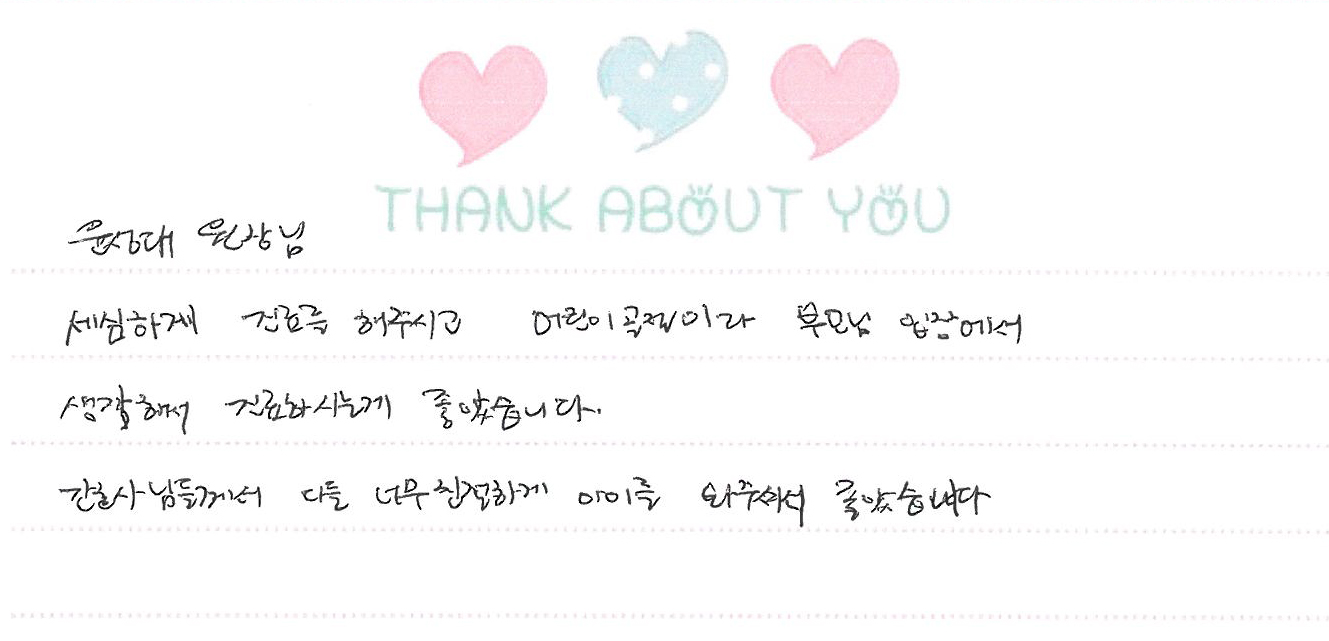 THANK ABOUT YOU
윤성대 원장님
세심하게 진료를 해주시고 어린이골절이라 부모님 입장에서
생각해서 진료하시는게 좋았습니다.
간호사님들께서 다들 너무 친절하게 아이를 봐주셔서 좋았습니다